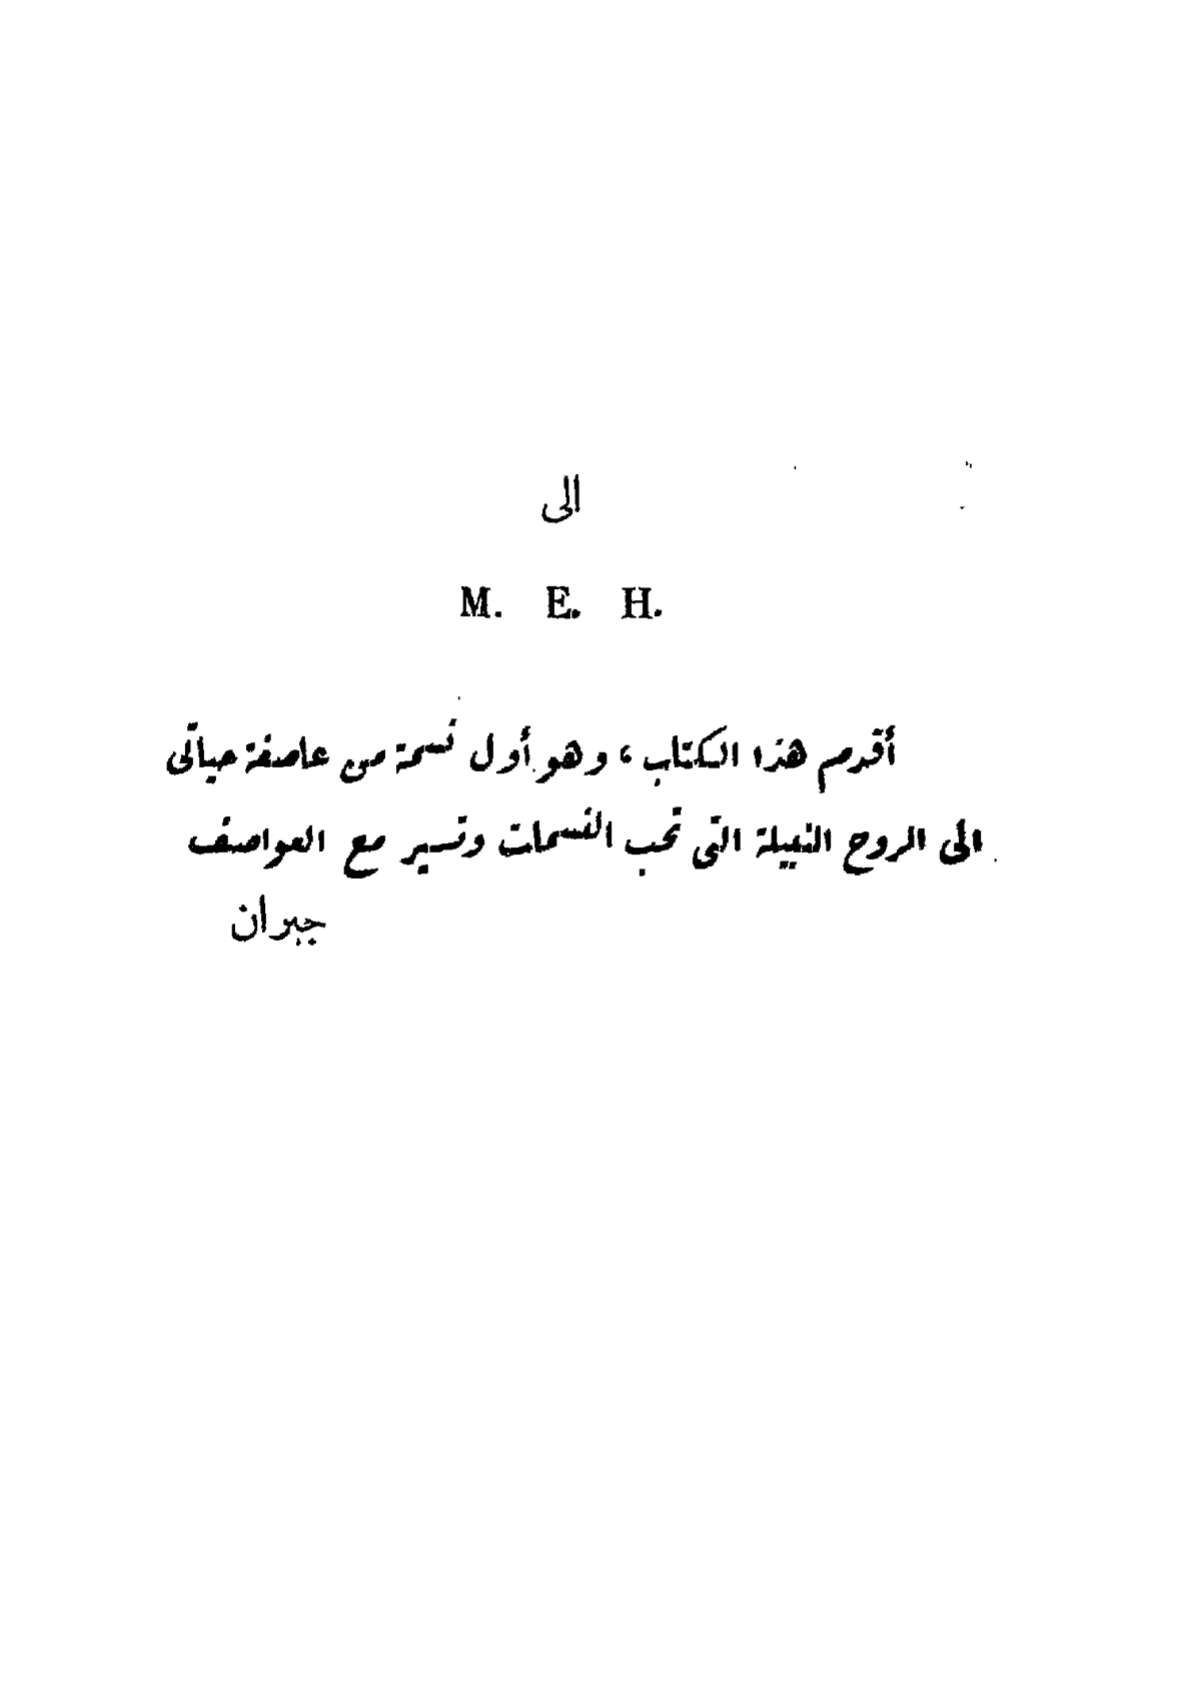 الى
M. E. H.
أقدم هذا الكتاب، وهو أول نسمة من عاصفة حياتى
الى الروح النبيلة التى تحب النسمات وتسير مع العواصف
جبران